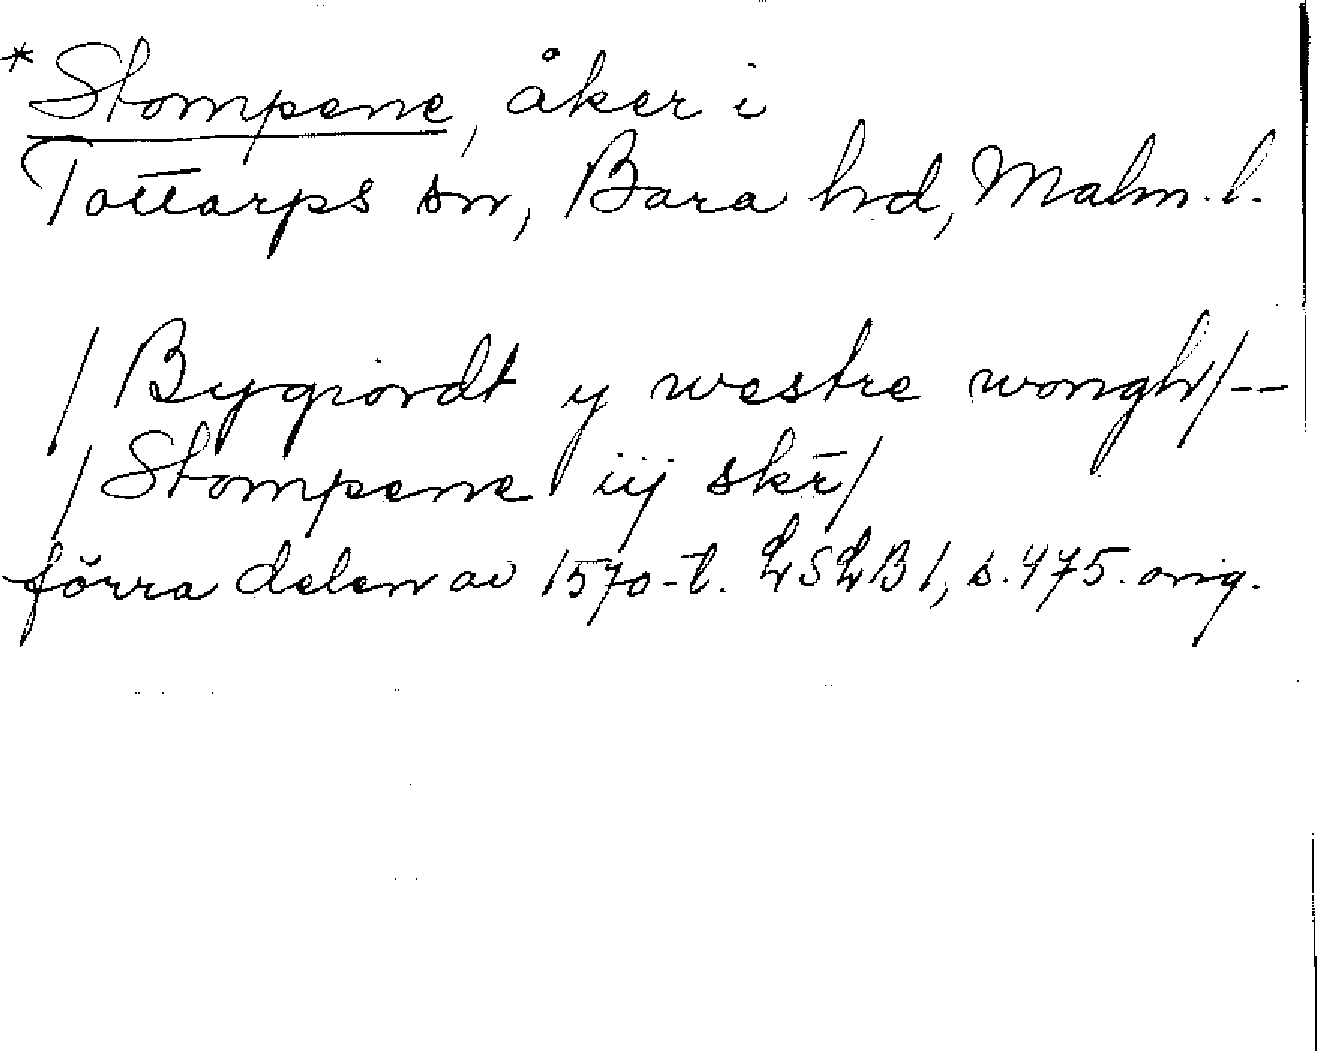 *Stompene, åker i
Tottarps sn, Bara hd, Malm. l.
/Bygiordt y westre wongh/--
/Stompene iij skr̄/
förra delen av 1570-t. LSLB 1, s. 475. orig.